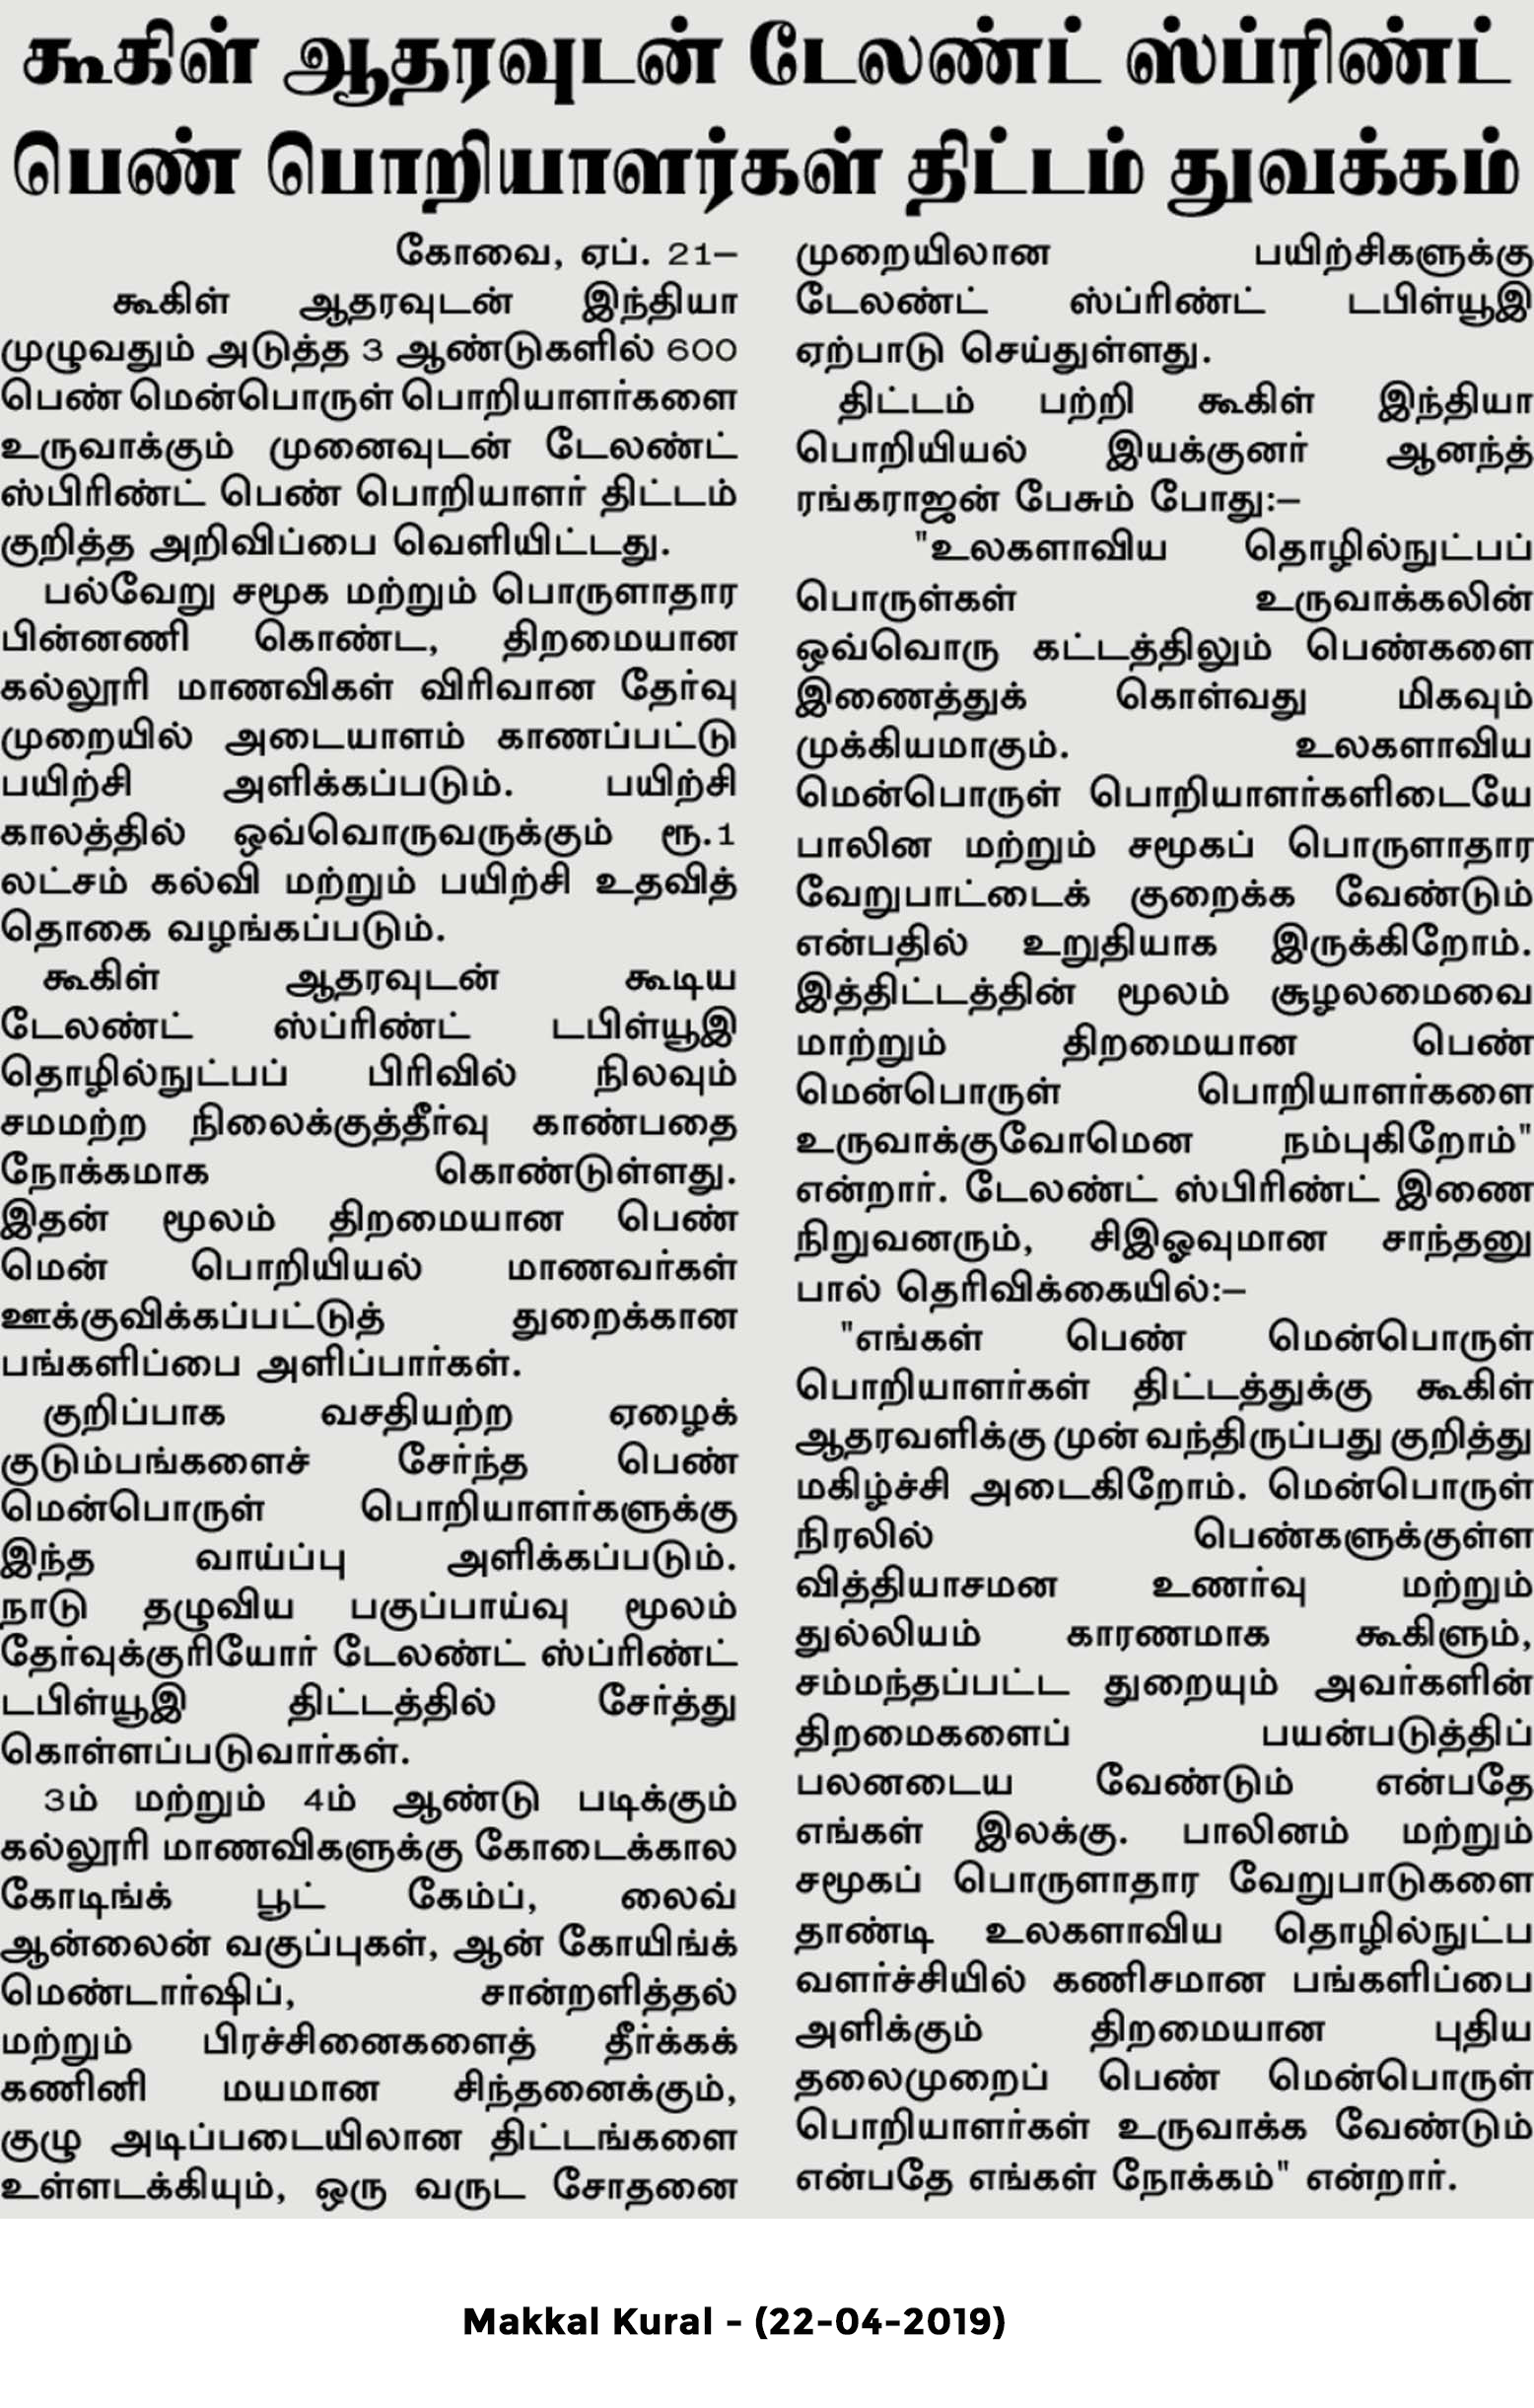 கூகிள் ஆதரவுடன் டேலண்ட் ஸ்ப்ரிண்ட்
பெண் பொறியாளர்கள் திட்டம் துவக்கம்
கோவை, ஏப். 21–
கூகிள் ஆதரவுடன் இந்தியா
முழுவதும் அடுத்த 3 ஆண்டுகளில் 600
பெண் மென்பொருள் பொறியாளர்களை
உருவாக்கும் முனைவுடன் டேலண்ட்
ஸ்பிரிண்ட் பெண் பொறியாளர் திட்டம்
குறித்த அறிவிப்பை வெளியிட்டது.
பல்வேறு சமூக மற்றும் பொருளாதார
பின்னணி கொண்ட, திறமையான
கல்லூரி மாணவிகள் விரிவான தேர்வு
முறையில் அடையாளம் காணப்பட்டு
பயிற்சி அளிக்கப்படும். பயிற்சி
காலத்தில் ஒவ்வொருவருக்கும் ரூ.1
லட்சம் கல்வி மற்றும் பயிற்சி உதவித்
தொகை வழங்கப்படும்.
கூகிள் ஆதரவுடன் கூடிய
டேலண்ட் ஸ்ப்ரிண்ட் டபிள்யூஇ
தொழில்நுட்பப் பிரிவில் நிலவும்
சமமற்ற நிலைக்குத்தீர்வு காண்பதை
நோக்கமாக கொண்டுள்ளது.
இதன் மூலம் திறமையான பெண்
மென் பொறியியல் மாணவர்கள்
ஊக்குவிக்கப்பட்டுத் துறைக்கான
பங்களிப்பை அளிப்பார்கள்.
குறிப்பாக வசதியற்ற ஏழைக்
குடும்பங்களைச் சேர்ந்த பெண்
மென்பொருள் பொறியாளர்களுக்கு
இந்த வாய்ப்பு அளிக்கப்படும்.
நாடு தழுவிய பகுப்பாய்வு மூலம்
தேர்வுக்குரியோர் டேலண்ட் ஸ்ப்ரிண்ட்
டபிள்யூஇ திட்டத்தில் சேர்த்து
கொள்ளப்படுவார்கள்.
3ம் மற்றும் 4ம் ஆண்டு படிக்கும்
கல்லூரி மாணவிகளுக்கு கோடைக்கால
கோடிங்க் பூட் கேம்ப், லைவ்
ஆன்லைன் வகுப்புகள், ஆன் கோயிங்க்
மெண்டார்ஷிப், சான்றளித்தல்
மற்றும் பிரச்சினைகளைத் தீர்க்கக்
கணினி மயமான சிந்தனைக்கும்,
குழு அடிப்படையிலான திட்டங்களை
உள்ளடக்கியும், ஒரு வருட சோதனை
முறையிலான பயிற்சிகளுக்கு
டேலண்ட் ஸ்ப்ரிண்ட் டபிள்யூஇ
ஏற்பாடு செய்துள்ளது.
திட்டம் பற்றி கூகிள் இந்தியா
பொறியியல் இயக்குனர் ஆனந்த்
ரங்கராஜன் பேசும் போது:–
"உலகளாவிய தொழில்நுட்பப்
பொருள்கள் உருவாக்கலின்
ஒவ்வொரு கட்டத்திலும் பெண்களை
இணைத்துக் கொள்வது மிகவும்
முக்கியமாகும். உலகளாவிய
மென்பொருள் பொறியாளர்களிடையே
பாலின மற்றும் சமூகப் பொருளாதார
வேறுபாட்டைக் குறைக்க வேண்டும்
என்பதில் உறுதியாக இருக்கிறோம்.
இத்திட்டத்தின் மூலம் சூழலமைவை
மாற்றும் திறமையான பெண்
மென்பொருள் பொறியாளர்களை
உருவாக்குவோமென நம்புகிறோம்"
என்றார். டேலண்ட் ஸ்பிரிண்ட் இணை
நிறுவனரும், சிஇஓவுமான சாந்தனு
பால் தெரிவிக்கையில்:–
"எங்கள் பெண் மென்பொருள்
பொறியாளர்கள் திட்டத்துக்கு கூகிள்
ஆதரவளிக்கு முன் வந்திருப்பது குறித்து
மகிழ்ச்சி அடைகிறோம். மென்பொருள்
நிரலில் பெண்களுக்குள்ள
வித்தியாசமன உணர்வு மற்றும்
துல்லியம் காரணமாக கூகிளும்,
சம்மந்தப்பட்ட துறையும் அவர்களின்
திறமைகளைப் பயன்படுத்திப்
பலனடைய வேண்டும் என்பதே
எங்கள் இலக்கு. பாலினம் மற்றும்
சமூகப் பொருளாதார வேறுபாடுகளை
தாண்டி உலகளாவிய தொழில்நுட்ப
வளர்ச்சியில் கணிசமான பங்களிப்பை
அளிக்கும் திறமையான புதிய
தலைமுறைப் பெண் மென்பொருள்
பொறியாளர்கள் உருவாக்க வேண்டும்
என்பதே எங்கள் நோக்கம்" என்றார்.
Makkal Kural - (22-04-2019)